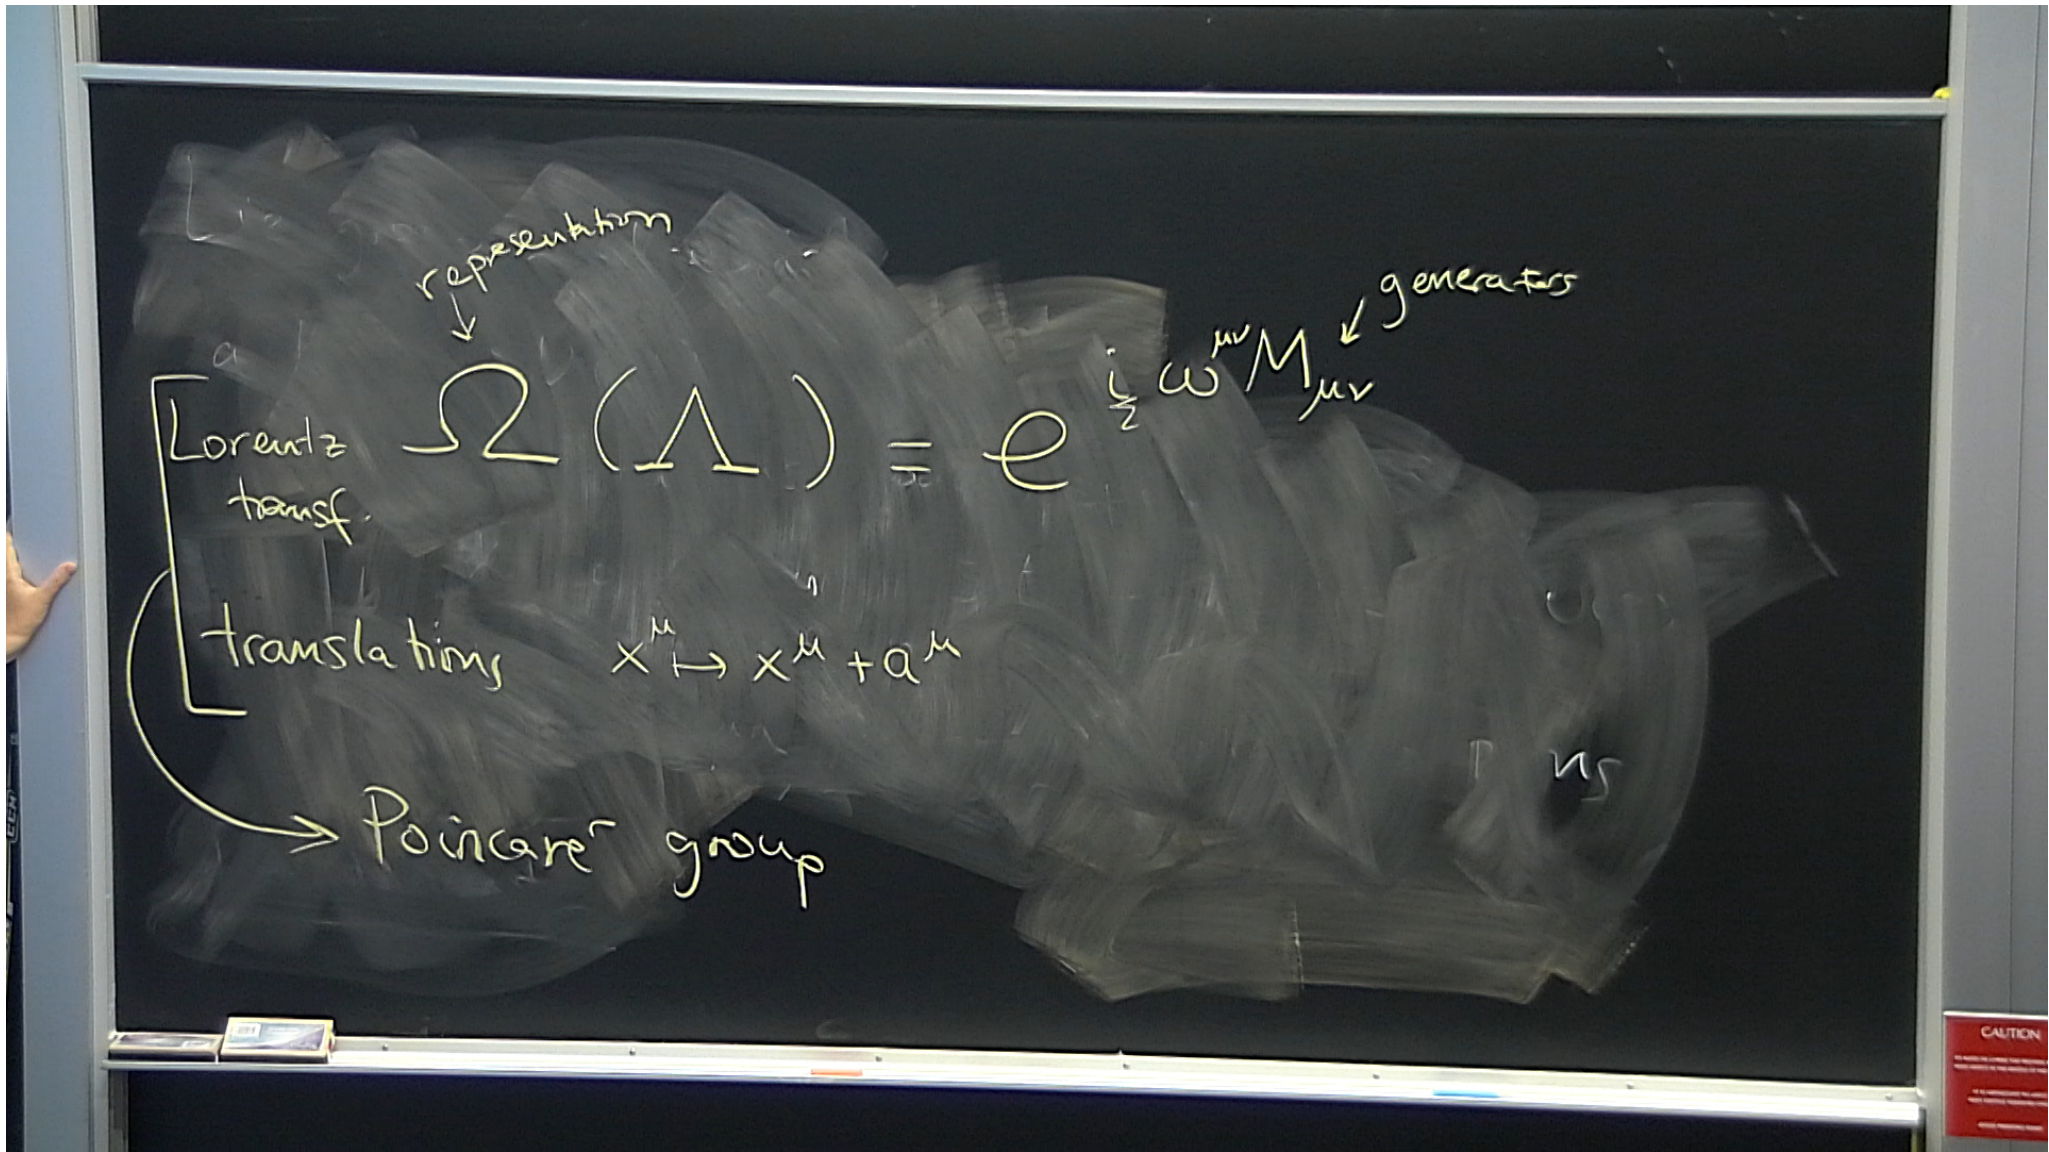 representation
generators
Lorentz transf.
Ω(Λ) = e^{i/2 ω^{μν} M_{μν}}
translations x^μ ↦ x^μ + a^μ
Poincaré group
CAUTION